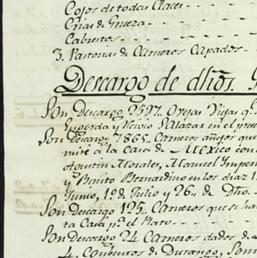 Cojos de todas Clases - - -
Crias de Grueza - - -
Cabritos - - - -
3. Pastorias de Carneros Capados -
Descargo de dhos.
Son Descargo 2597. Ovejas Viejas q.
Engorda y Vendio Salazar en el prese
Son Descargo 7865. Carneros añejos que
mitì a la Casa de Mexico con
Agustin Morales, Manuel
y Benito Bernardino en los dias 1
Junio, 1º de Julio y 26 de Dho.
Son Descargo 125. Carneros que se
ta Casa pª el Plato.
Son Descargo 24 Carneros dados de
4. de Durango,